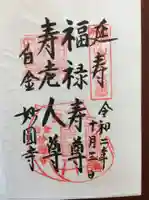 延寿
令和二年十月三日
福禄寿尊
寿老人尊
白金 妙圓寺